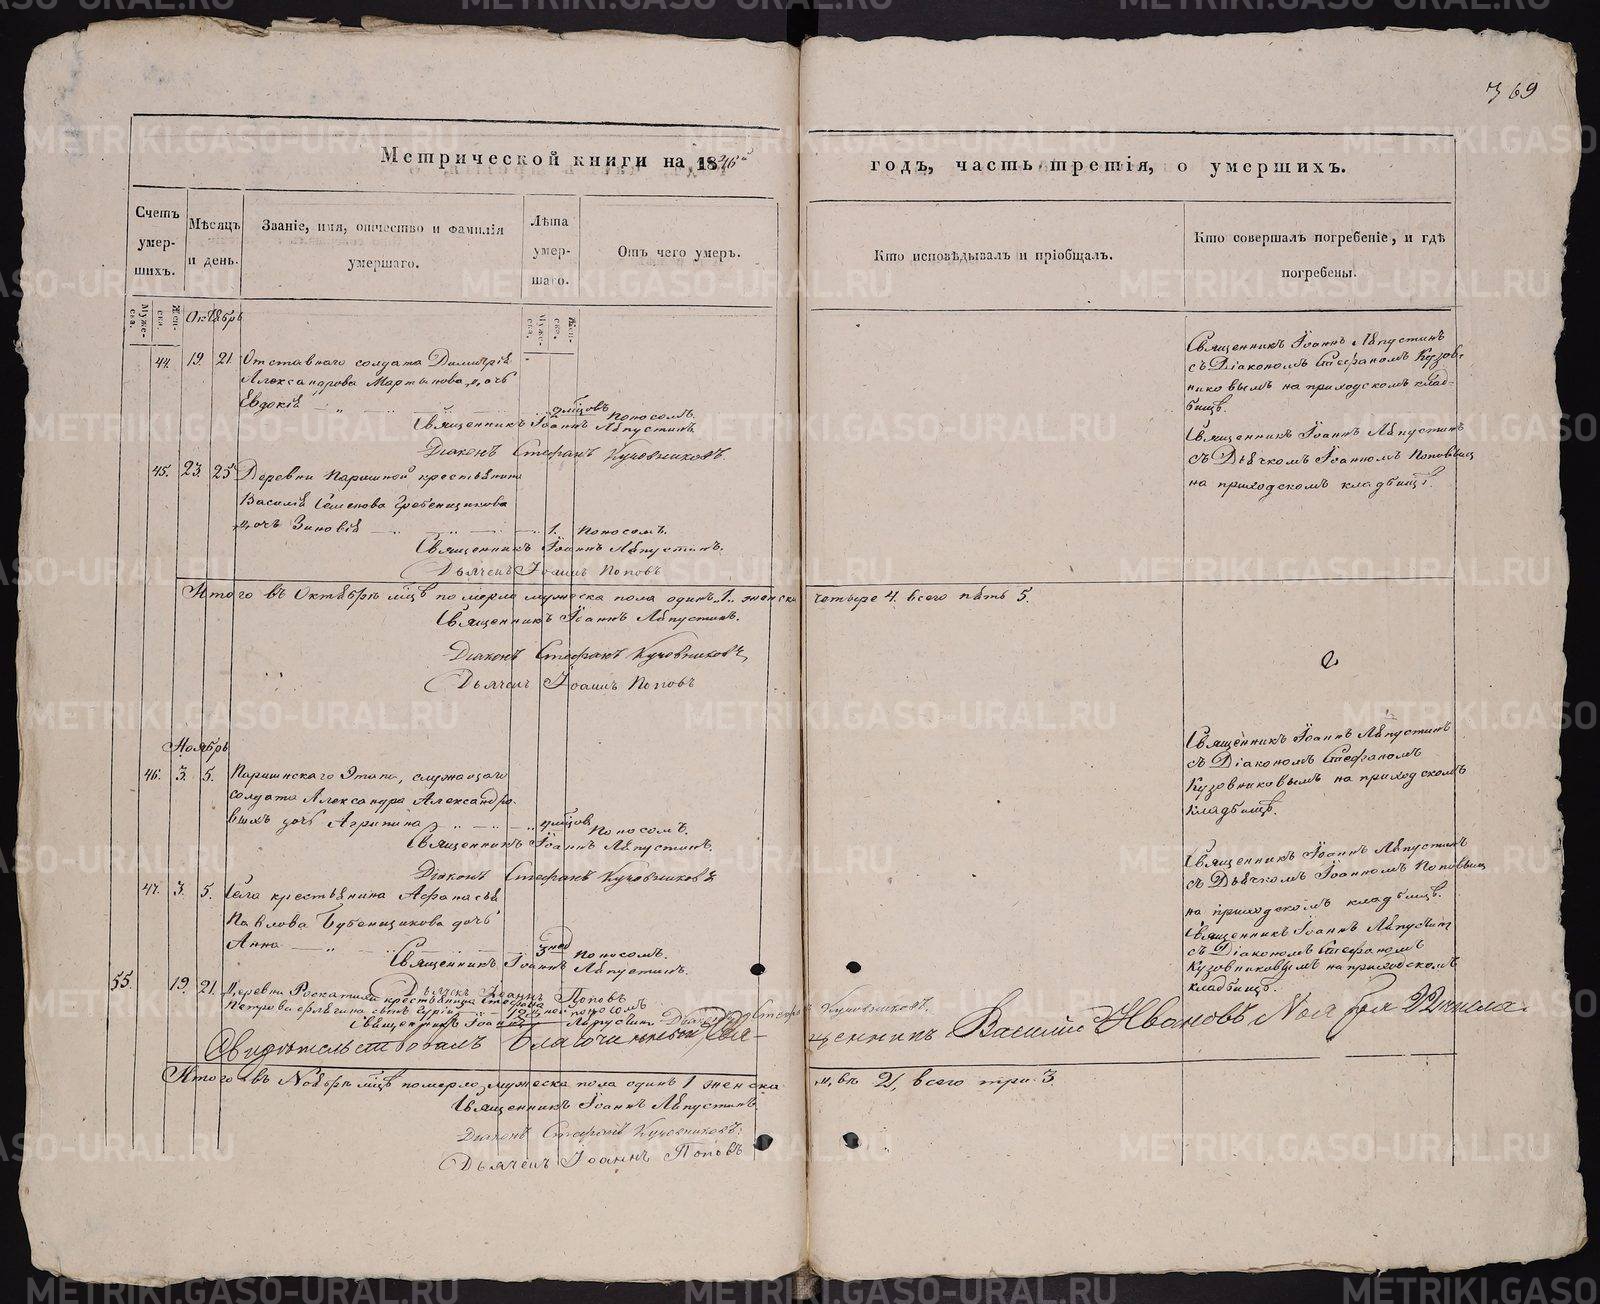 369
Метрической книги на 1846й
годъ, часть третія, о умершихъ.
Счетъ умер- шихъ.
Мѣсяцъ и день.
Званіе, имя, отчество и фамилія умершаго.
Лѣта умер- шаго.
Отъ чего умеръ.
Кто исповѣдывалъ и пріобщалъ.
Кто совершалъ погребеніе, и гдѣ погребены.
Муже- ска.
Жен- ска.
Октябрь
Муже- ска.
Жен- ска.
44. 19. 21 Отставнаго солдата Димитрія
Александрова Мартынова, дочь
Евдокія
поносомъ.
Священникъ Іоаннъ Лѣпустинъ.
Діаконъ Стефанъ Кузовниковъ.
Священникъ Іоаннъ Лѣпустинъ
съ Діакономъ Стефаномъ Кузов-
никовымъ на приходскомъ клад-
бищѣ.
45. 23. 25 Деревни Паршиной крестьянина
Василія Семенова Гребенщикова
дочь Зиновія 1. поносомъ.
Священникъ Іоаннъ Лѣпустинъ.
Дьячекъ Іоаннъ Поповъ
Священникъ Іоаннъ Лѣпустинъ
съ Дьячкомъ Іоанномъ Поповымъ
на приходскомъ кладбищѣ.
Итого въ Октябрѣ м͠цѣ померло мужеска пола одинъ 1. женска четыре 4. всего пять 5.
Священникъ Іоаннъ Лѣпустинъ.
Діаконъ Стефанъ Кузовниковъ,
Дьячекъ Іоаннъ Поповъ
Ноябрь
46. 3. 5. Паршинскаго Этапа, служащаго
солдата Александра Александро-
выхъ дочь Агрипина
поносомъ.
Священникъ Іоаннъ Лѣпустинъ.
Діаконъ Стефанъ Кузовниковъ
Священникъ Іоаннъ Лѣпустинъ
съ Діакономъ Стефаномъ
Кузовниковымъ на приходскомъ
кладбищѣ.
47. 3. 5. Села крестьянина Афанасія
Павлова Бубенщикова дочь
Анна 3 нед поносомъ.
Священникъ Іоаннъ Лѣпустинъ.
Дьячекъ Іоаннъ Поповъ
Священникъ Іоаннъ Лѣпустинъ
съ Дьячкомъ Іоанномъ Поповымъ
на приходскомъ кладбищѣ.
55. 19. 21. Деревни крестьянина
Петрова сынъ поносомъ
Священникъ Іоаннъ Лѣпустинъ Діаконъ Стефанъ Кузовниковъ.
Священникъ Іоаннъ Лѣпустинъ
съ Діакономъ Стефаномъ
Кузовниковымъ на приходскомъ
кладбищѣ.
Свидѣтельствовалъ Благочинный Свя- щенникъ Василій Ивановъ Ноября числа.
Итого въ Ноябрѣ м͠цѣ померло мужеска пола одинъ 1 женска двѣ 2, всего три 3.
Священникъ Іоаннъ Лѣпустинъ.
Діаконъ Стефанъ Кузовниковъ.
Дьячекъ Іоаннъ Поповъ
METRIKI.GASO-URAL.RU